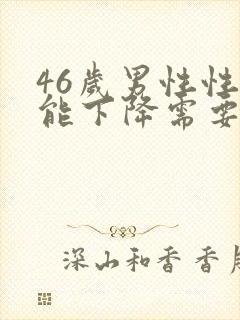 46岁男性性
能下降需要
深山和香香